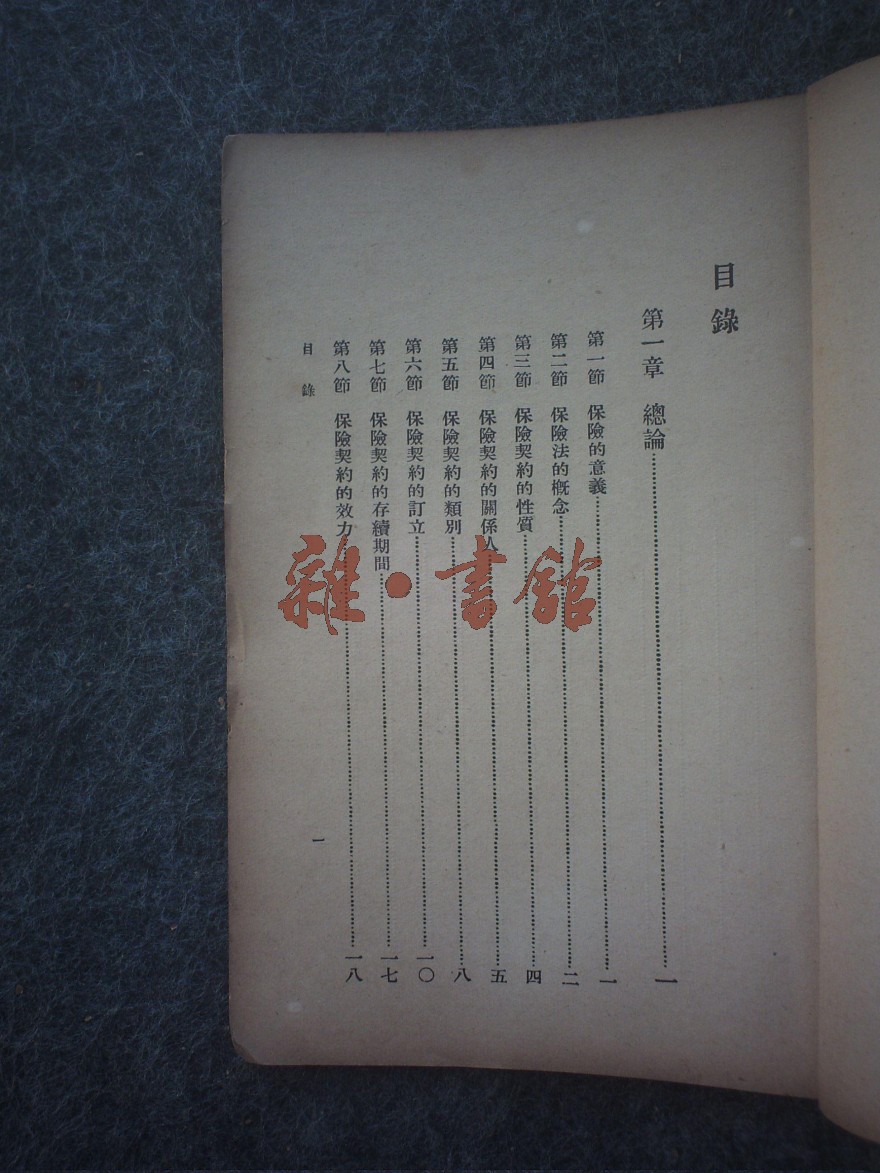 目錄
第一章　總論…………一
第一節　保險的意義…………一
第二節　保險法的槪念…………二
第三節　保險契約的性質…………四
第四節　保險契約的關係人…………五
第五節　保險契約的類別…………八
第六節　保險契約的訂立…………一〇
第七節　保險契約的存續期間…………一七
第八節　保險契約的效力…………一八
目錄
一
雜·書館